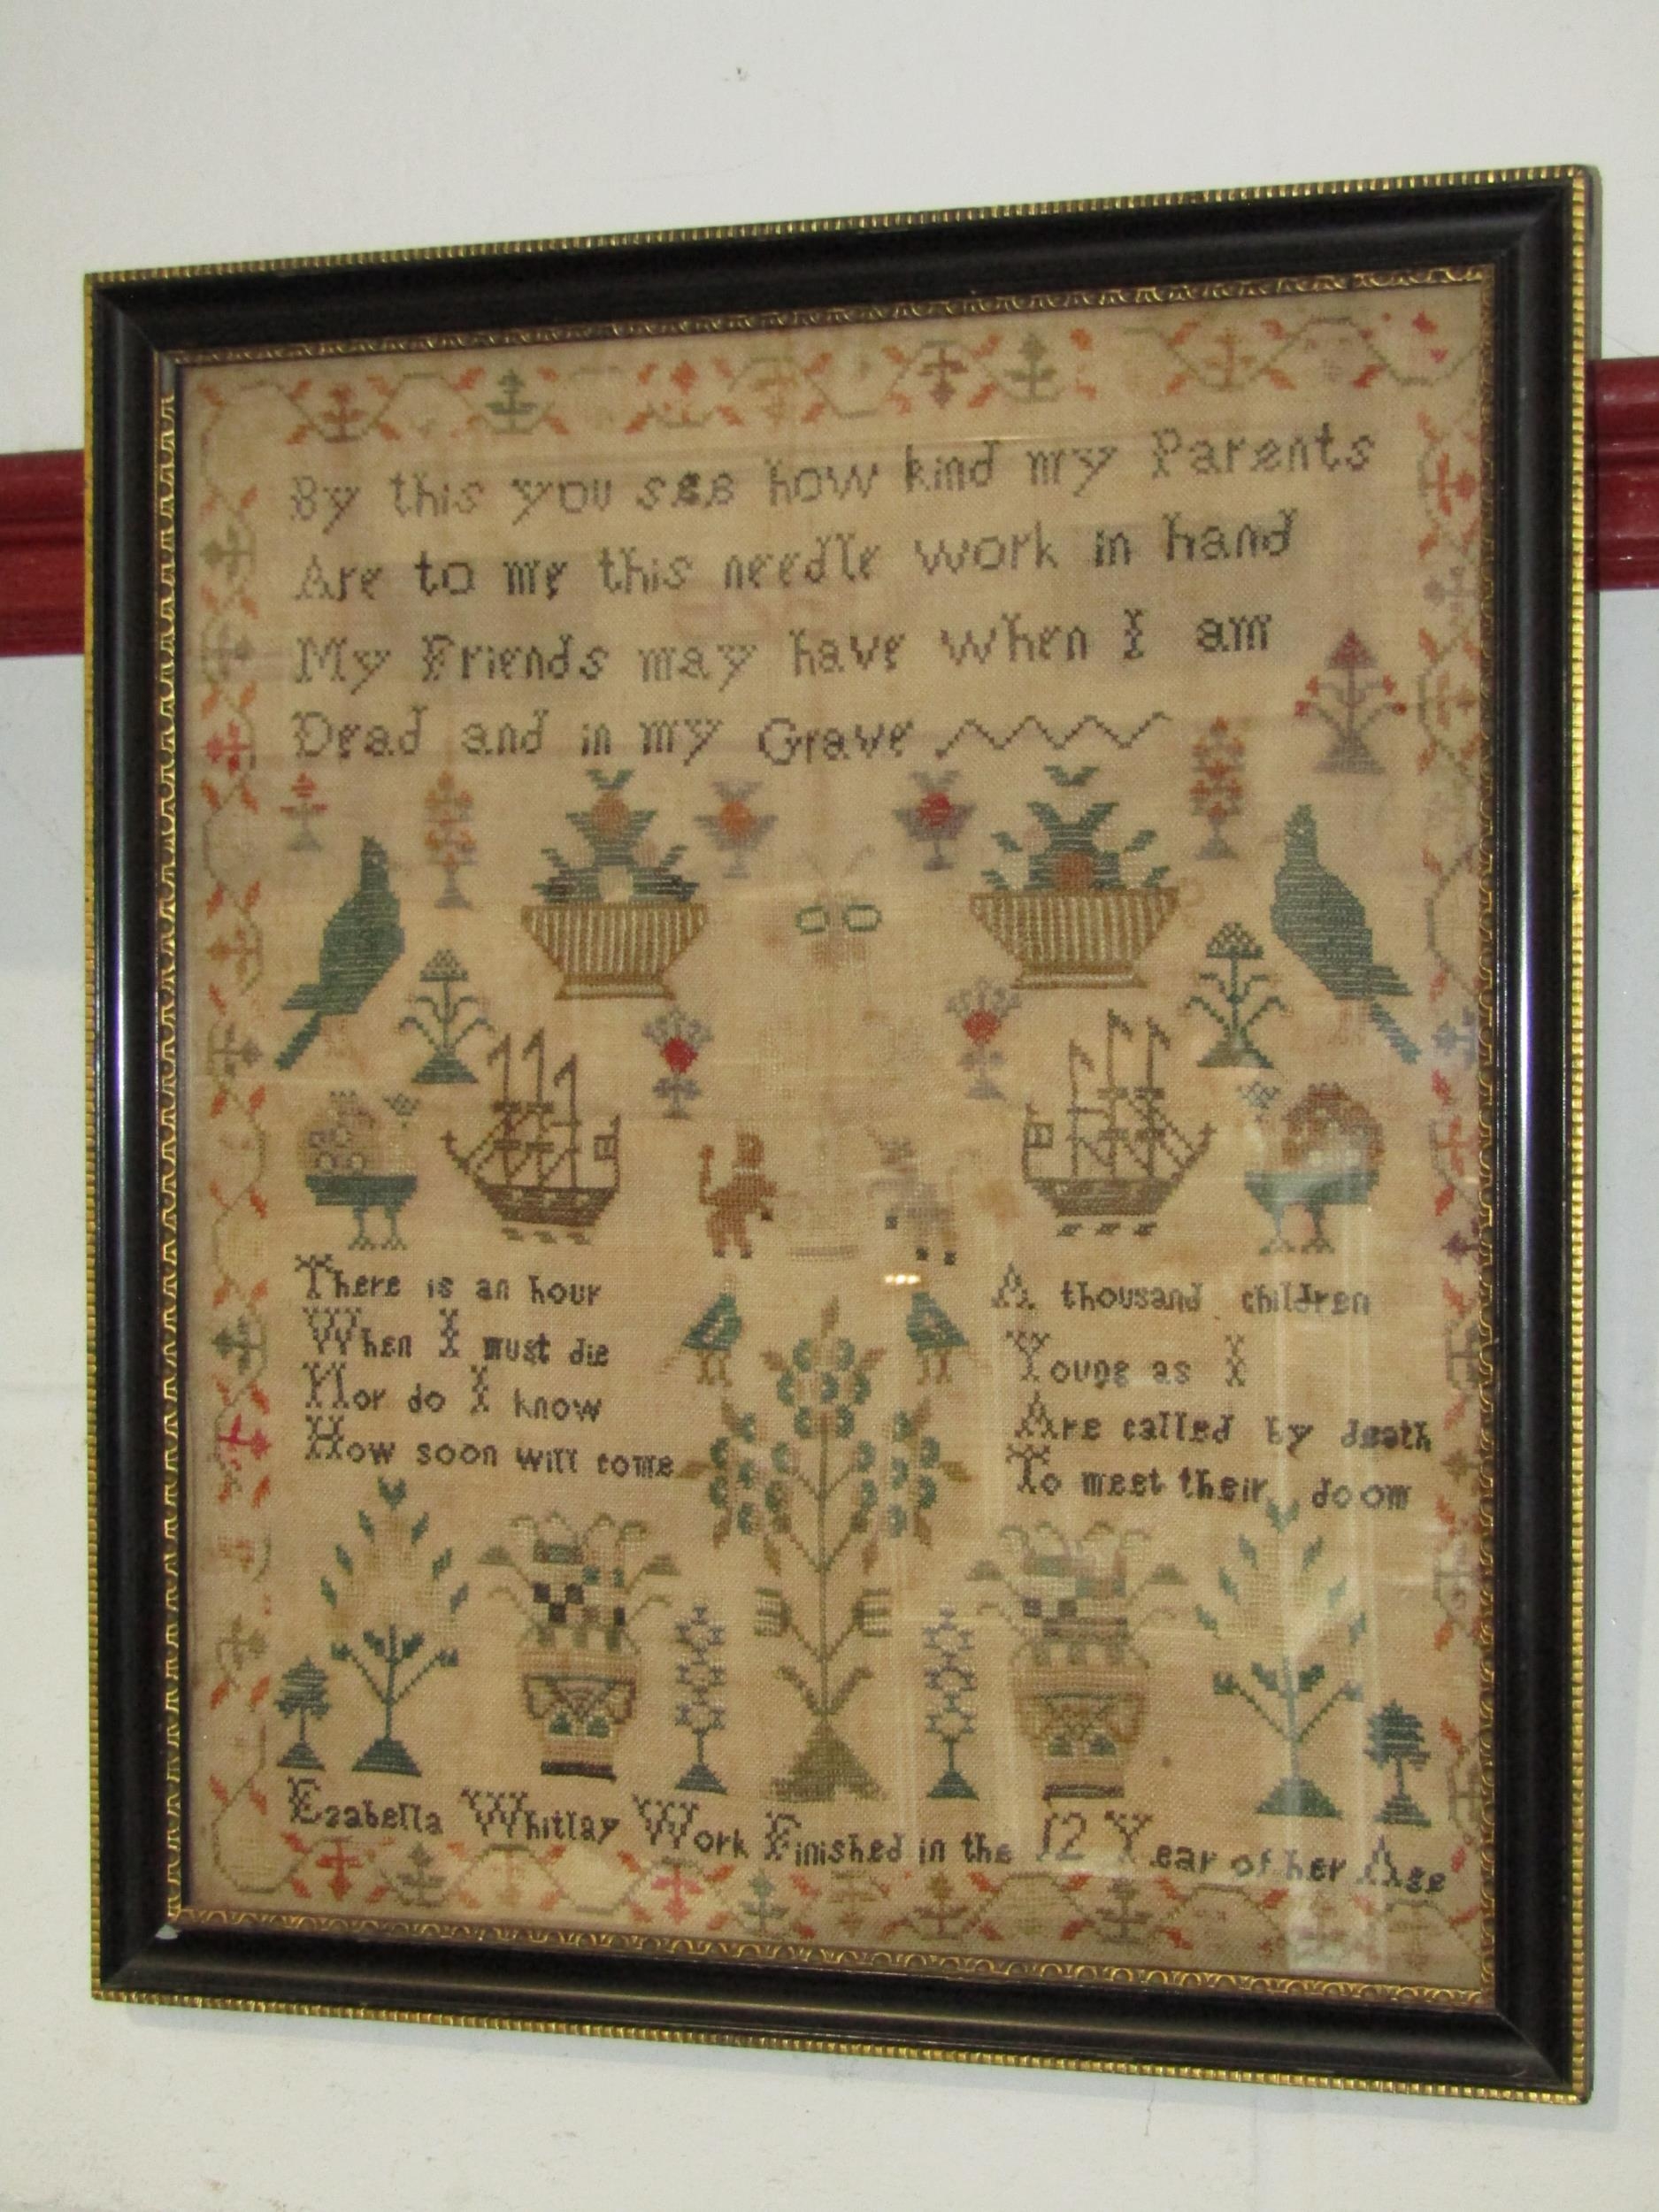 By this you see how kind my Parents
Are to me this needle work in hand
My Friends may have when I am
Dead and in my Grave
There is an hour
When I must die
Nor do I know
How soon will come
A thousand children
Young as I
Are called by death
To meet their doom
Ezabella Whitlay Work Finished in the 12 Year of her Age